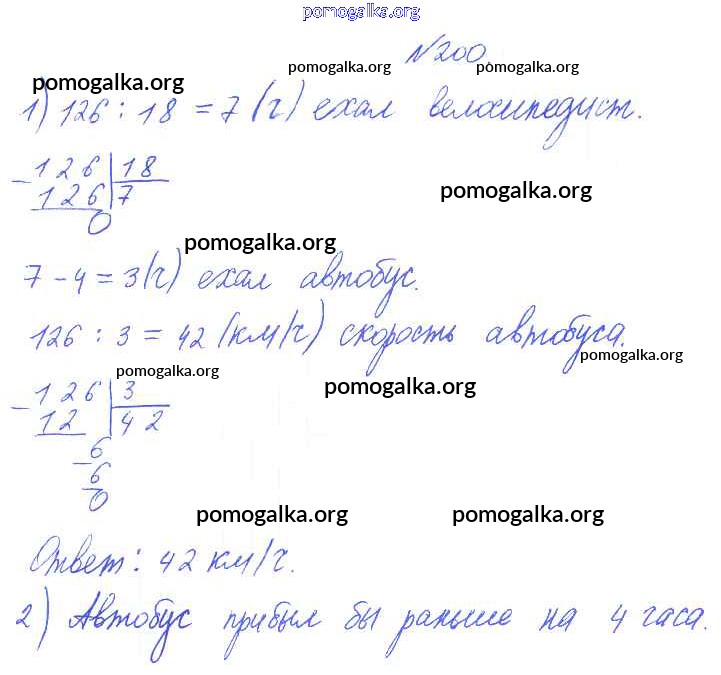 pomogalka.org
№200
pomogalka.org pomogalka.org pomogalka.org
1) 126 : 18 = 7 (ч) ехал велосипедист.
- 126 | 18
126 | 7
0
pomogalka.org
pomogalka.org
7 - 4 = 3 (ч) ехал автобус.
126 : 3 = 42 (км/ч) скорость автобуса.
pomogalka.org
pomogalka.org
pomogalka.org
- 126 | 3
12 | 42
- 6
6
0
pomogalka.org pomogalka.org
Ответ: 42 км/ч.
2) Автобус прибыл бы раньше на 4 часа.